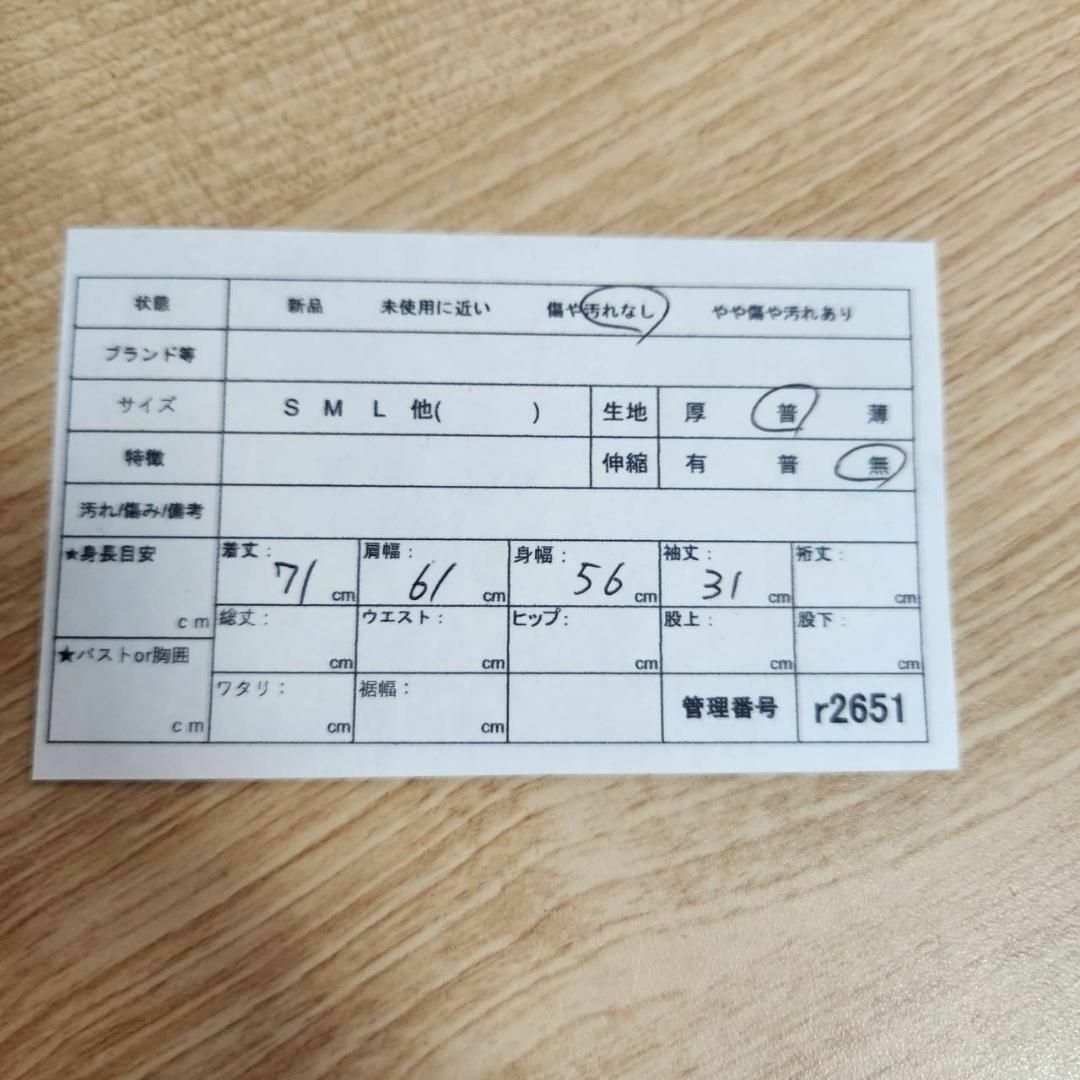 状態 新品 未使用に近い 傷や汚れなし やや傷や汚れあり
ブランド等
サイズ S M L 他( ) 生地 厚 普 薄
特徴 伸縮 有 普 無
汚れ/傷み/備考
★身長目安 cm 着丈: 71 cm 肩幅: 61 cm 身幅: 56 cm 袖丈: 31 cm 裄丈: cm
総丈: cm ウエスト: cm ヒップ: cm 股上: cm 股下: cm
★バストor胸囲 cm ワタリ: cm 裾幅: cm 管理番号 r2651